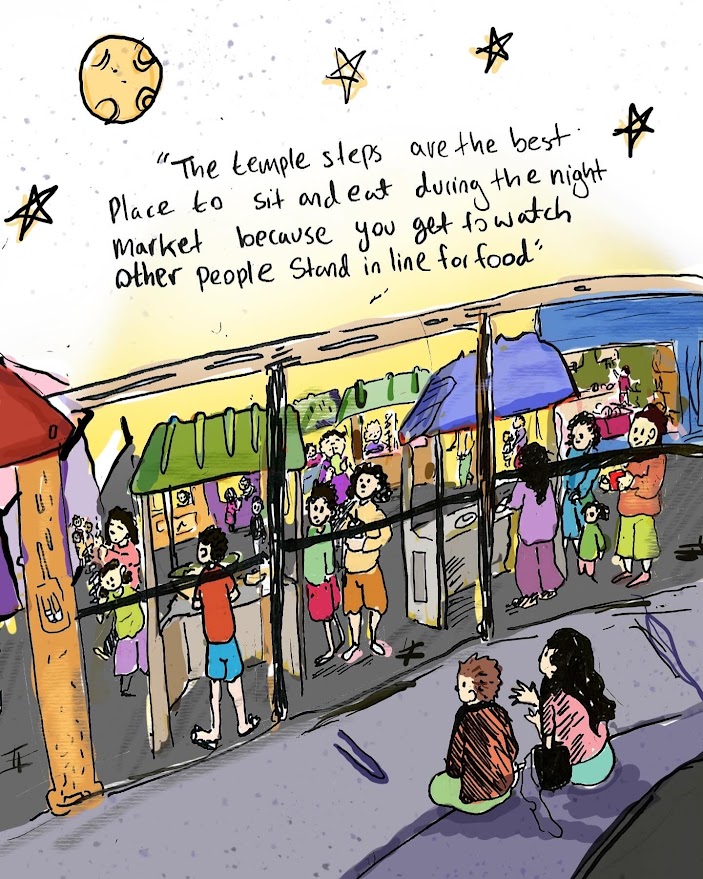 "The temple steps are the best
Place to sit and eat during the night
market because you get to watch
other people stand in line for food"